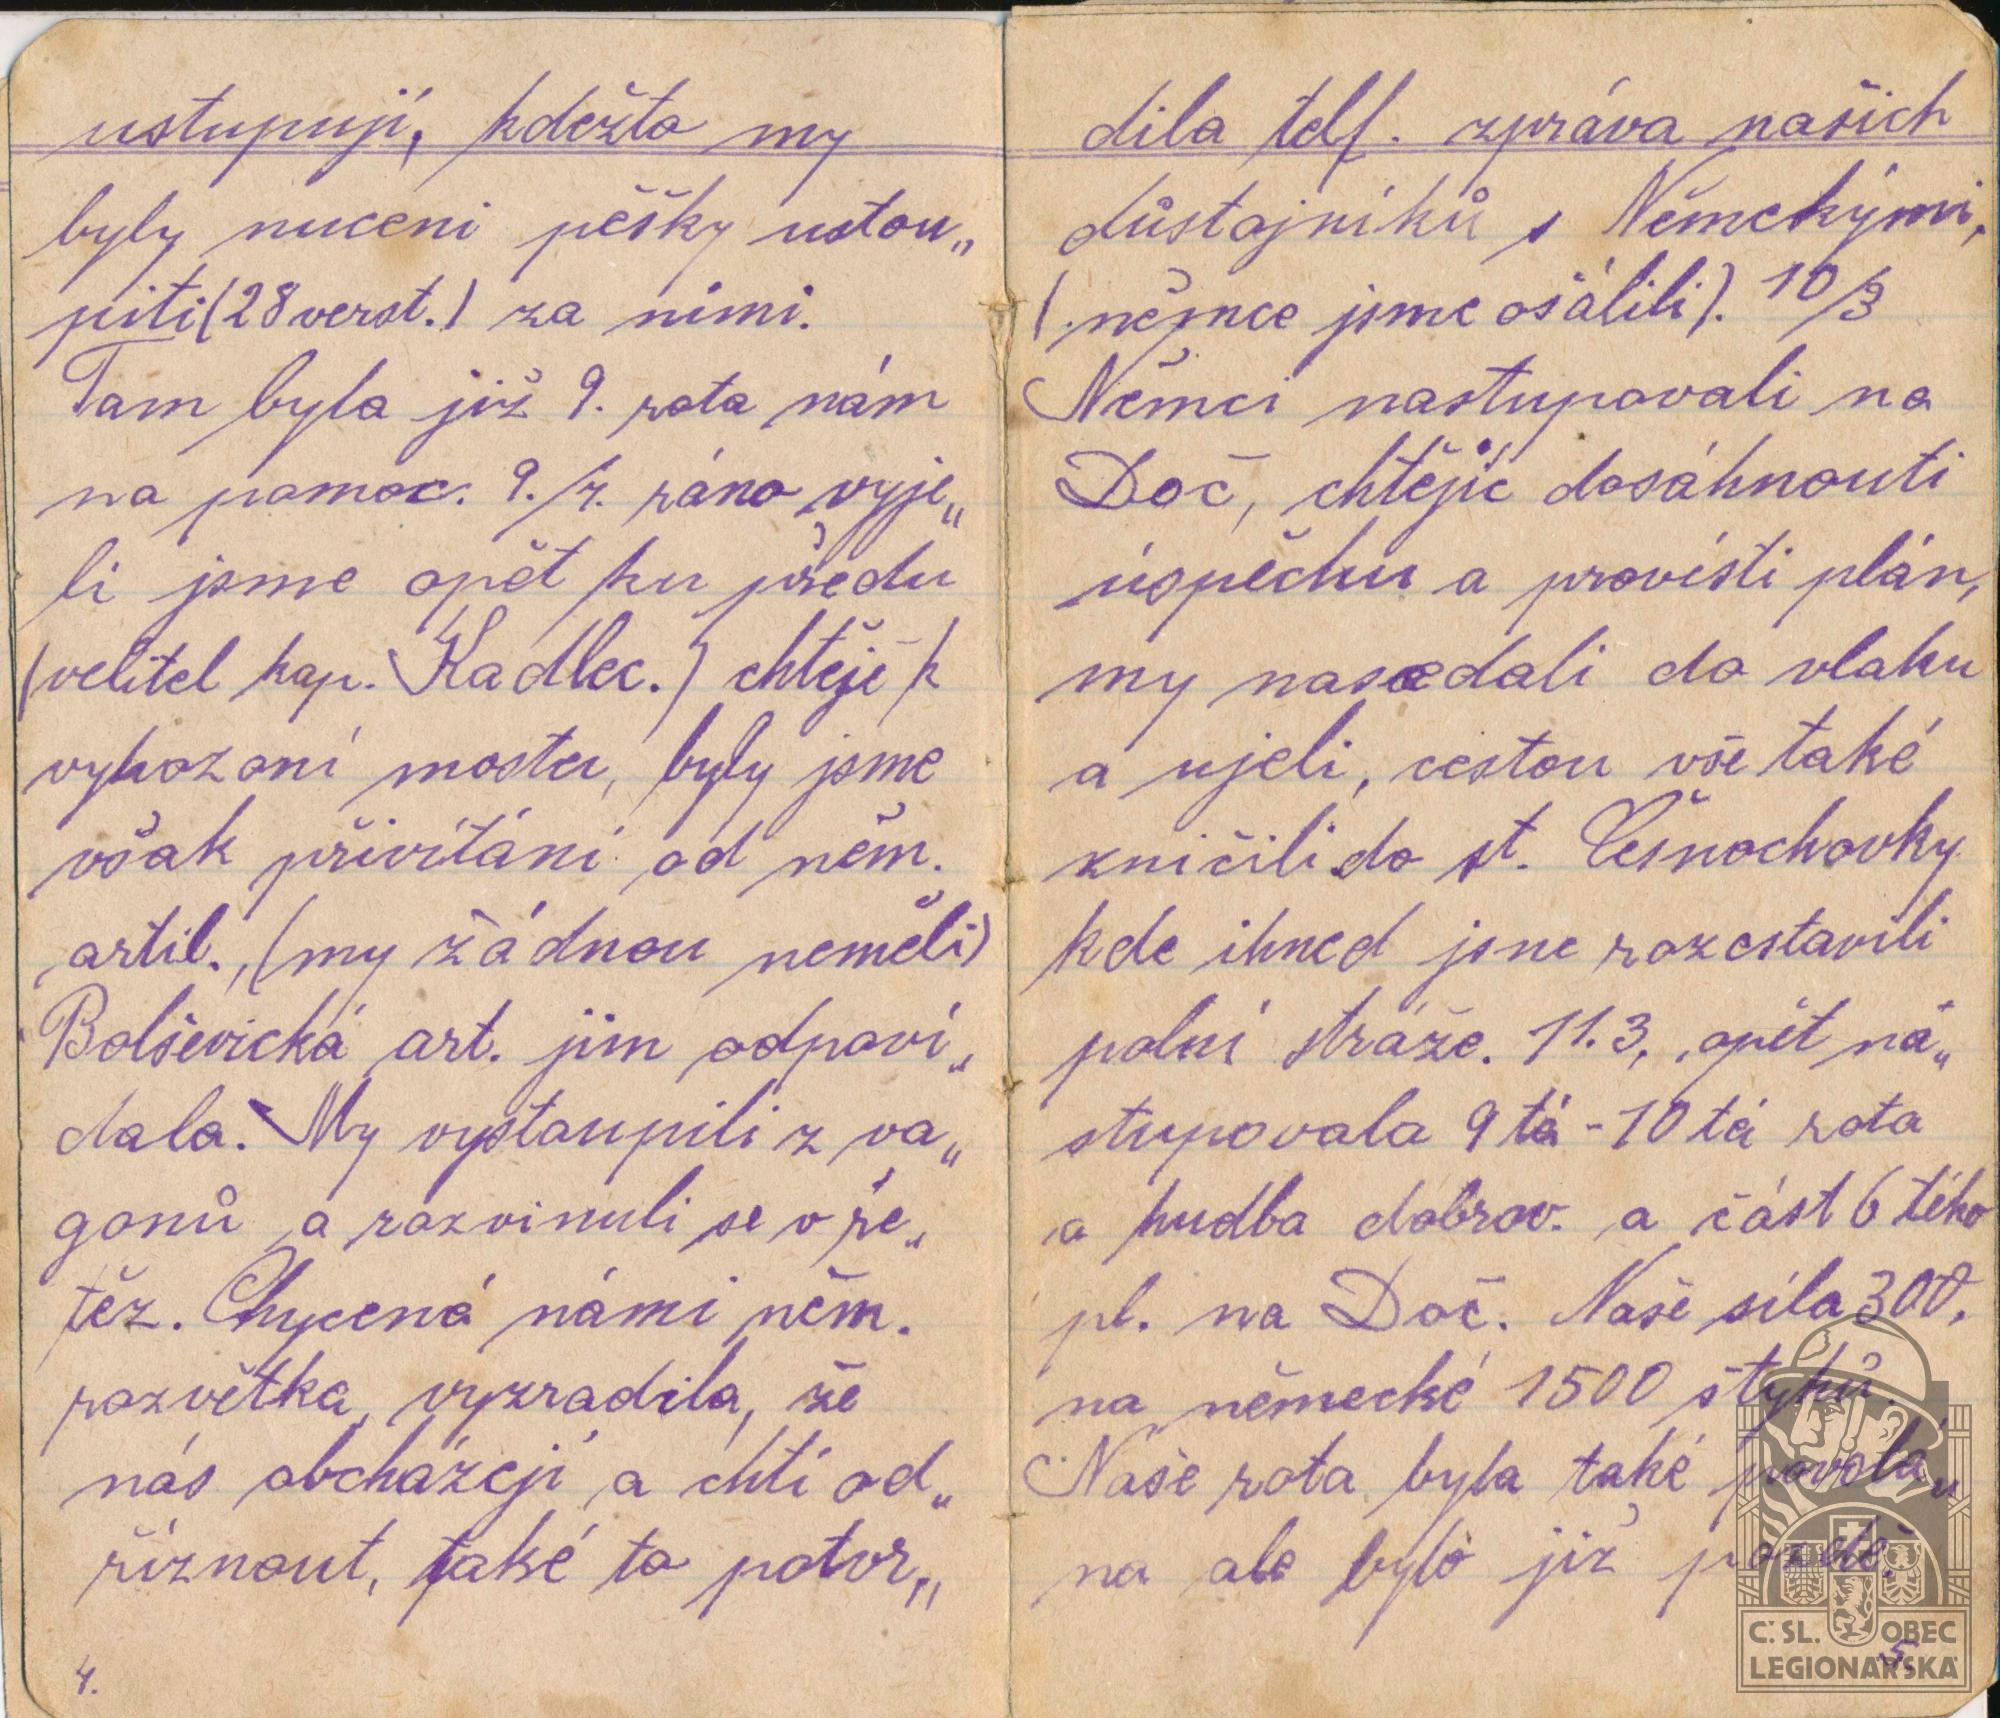 ustupují, kdežto my
byly nuceni pěšky ustou„
piti (28 verst.) za nimi.
Tam byla již 9. rota nám
na pomoc. 9./4. ráno vyje„
li jsme opět ku předu
(velitel kap. Kadlec.) chtěje k
vyhození mostu, byly jsme
však přivítáni od něm.
artil., (my žádnou neměli)
Bolševická art. jim odpoví„
dala. My vystoupili z va„
gonů a rozvinuli se v ře„
těz. Chycená námi něm.
rozvětka, vyzradila, že
nás obcházejí a chtí od„
říznout, také to potvr„
4.
dila telf. zpráva našich
důstojníků s Německými,
(němce jsme ošálili). 10/3
Němci nastupovali na
Doč, chtějíc dosáhnouti
úspěchu a provésti plán,
my nasedali do vlaku
a ujeli, cestou vše také
zničili do st. Češnochovky
kde ihned jsne rozestavili
polní stráže. 11.3, opět na„
stupovala 9tá - 10tá rota
a hudba dobrov. a část 6tého
pl. na Doč. Naše síla 300,
na německé 1500 štyků.
Naše rota byla také povolá„
na ale bylo již pozdě.
5.
Č.SL. OBEC
LEGIONÁŘSKÁ